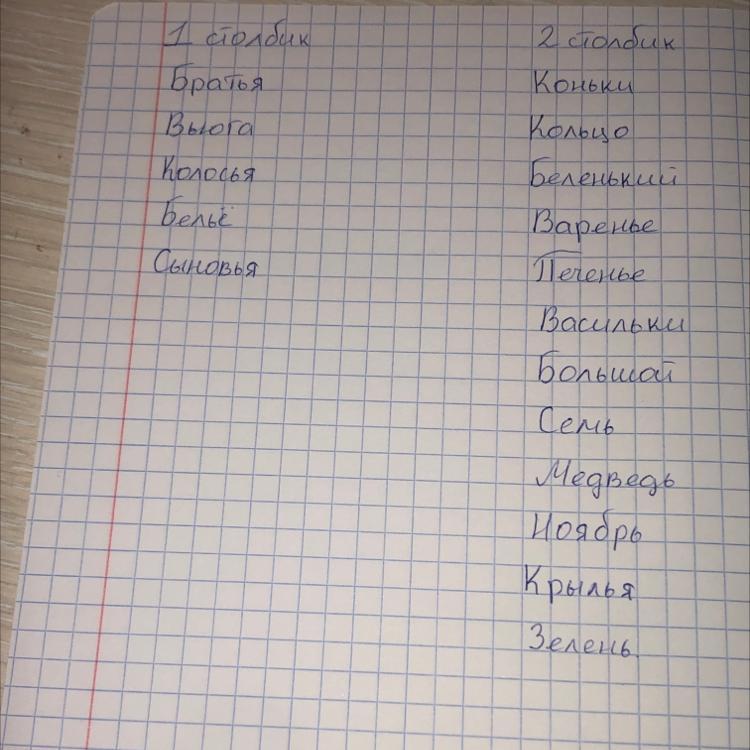 1 столбик
Братья
Вьюга
Колосья
Бельё
Сыновья
2 столбик
Коньки
Кольцо
Беленький
Варенье
Печенье
Васильки
Большой
Семь
Медведь
Ноябрь
Крылья
Зелень